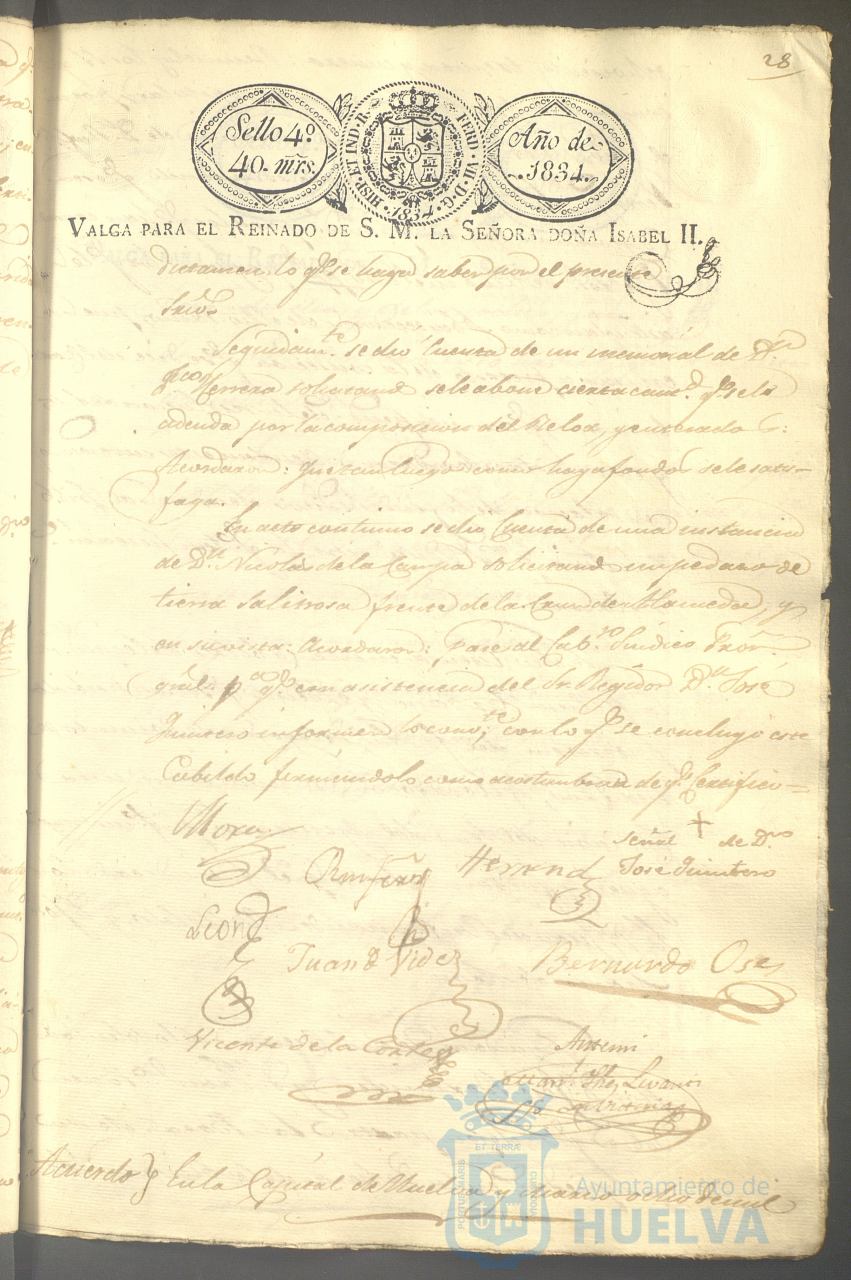 28
Sello 4º
40. mrs.
HISP. ET IND. R. FERD. VII. D. G. 1834.
Año de
1834.
VALGA PARA EL REINADO DE S. M. LA SEÑORA DOÑA ISABEL II.
dictamen lo qe. se haga saber por el presente
Srio.
Seguidamte. se dió cuenta de un memorial de Dn.
Herrera solicitand sele abone cierta cantd. qe. sele
adeuda por la composicion del Relox, y enterado
Acordaron: que tan luego como haya fondos sele satis-
faga.
En acto continuo se dio Cuenta de una instancia
de Dn. Nicolas de la Campa solicitand un pedazo de
tierra salitrosa frente de la Alameda, y
en su vista: Acordaron: pase al Cabro. Sindico Pror.
gral. pa. qe. con asistencia del Sr. Regidor Dn. José
Quintero informen lo convte. con lo qe. se concluyó este
Cabildo firmándolo como acostumbran de qe. Certifico=
Mora
Herrand
señal + de Dn.
José Quintero
Leon
Juan Videz
Bernardo
Vicente de la Corte
Antemi
Acuerdo En la Capital de Huelva
ET TERRÆ
PORTUS MARIS
CUSTODIA
Ayuntamiento de
HUELVA